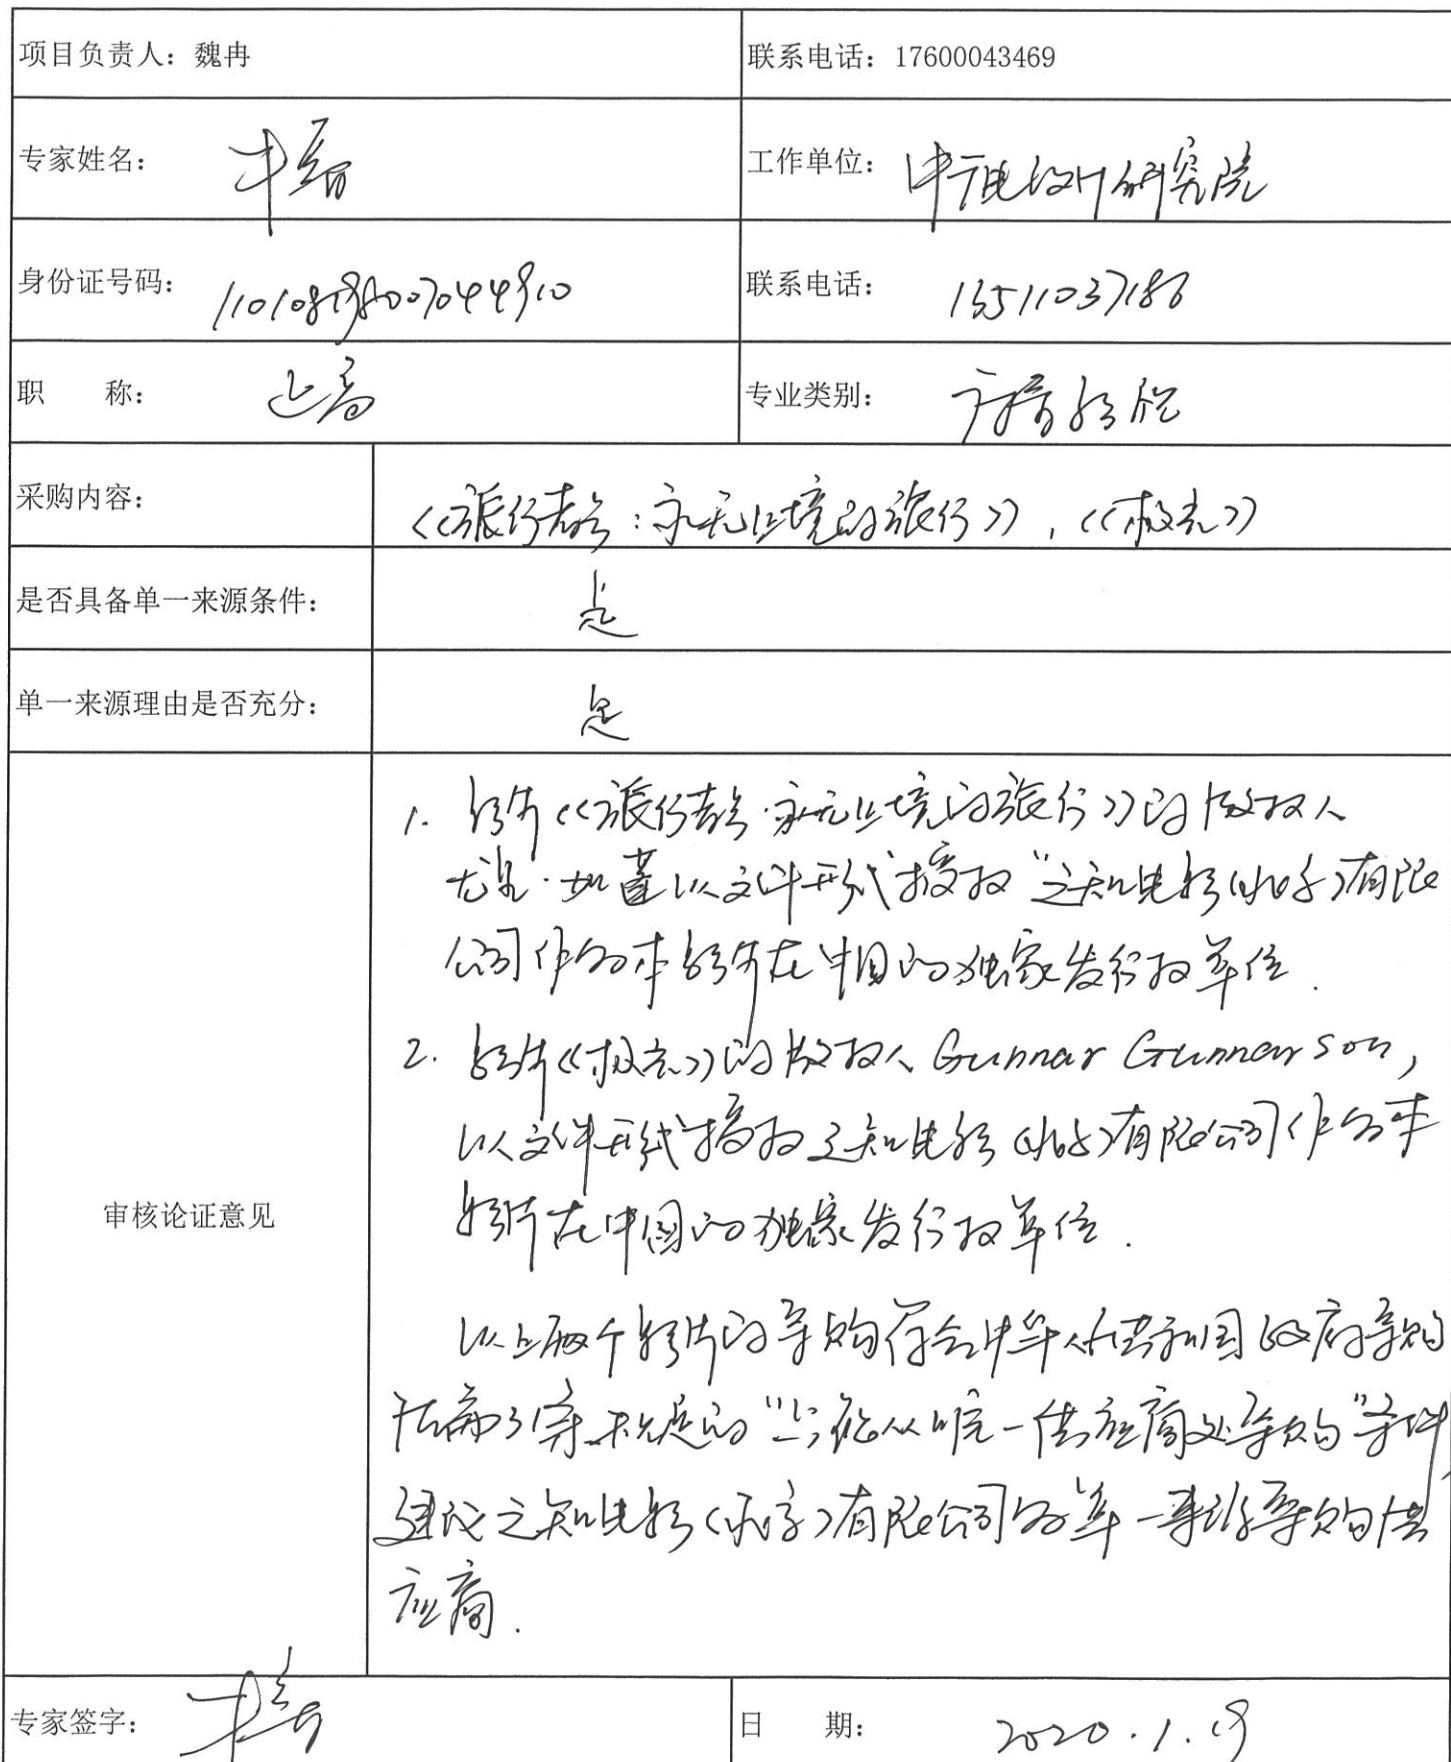 项目负责人：魏冉
联系电话：17600043469
专家姓名：
工作单位：中广电设计研究院
身份证号码：
联系电话：13511037186
职 称：正高
专业类别：广播影视
采购内容：
《旅行青蛙：永无止境的旅行》，《极光》
是否具备单一来源条件：
是
单一来源理由是否充分：
是
审核论证意见
1. 影片《旅行 永无止境的旅行》的版权人
以文件形式授权“之知电影（北京）有限
公司作为本影片在中国的独家发行权单位.
2. 影片《极光》的版权人 Gunnar Gunnarson,
以文件形式授权之知电影（北京）有限公司作为本
影片在中国的独家发行权单位.
以上两个影片的采购符合中华人民共和国政府采购
法第31条规定的“只能从唯一供应商处采购”条件,
建议之知电影（北京）有限公司为单一来源采购供
应商.
专家签字：
日 期：2020.1.19